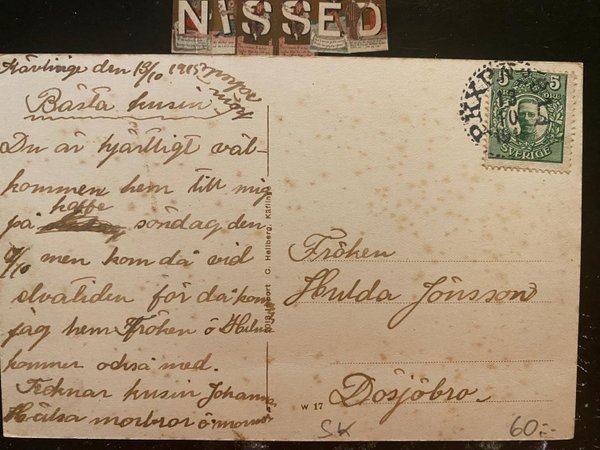 NISSED
Kävlinge den 13/10 1915
Bästa kusin
Du är hjärtligt väl-
kommen hem till mig
kaffe
på söndag den
/10 men kom då vid
elvatiden för då kom
jag hem Fröken
kommer också med.
Tecknar kusin Johanna
Hälsa morbror o mormor
C. Hellberg, Kävlinge
5
SVERIGE
Fröken
Hulda Jönsson
Dösjöbro.
W 17
SK
60:-